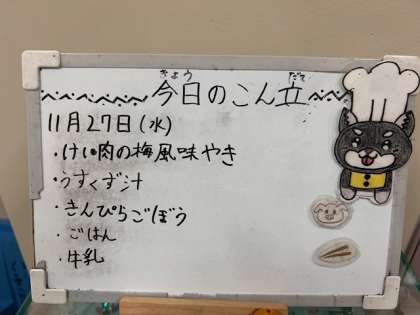 今日のこん立
きょう だて
11月27日(水)
・けい肉の梅風味やき
・うすくず汁
・きんぴらごぼう
・ごはん
・牛乳